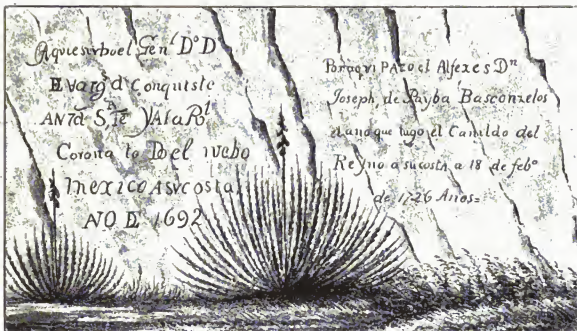 Aqui estubo el Genˡ Dⁿ D
E Varg.ˢ d Conquisto
ANTdᴬ S,ᵗᵃ Fe Y A la Rˡ
Corona to Do el nuebo
Mexico ASV costa
AÑO D 1692
Por aqui PAZo el Alferes Dⁿ
Joseph de Payba Basconzelos
el ano que tugo el Camildo del
Reyno a su costa a 18 de febᵒ
de 1726 Años=